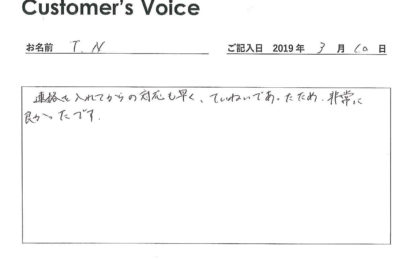 Customer's Voice
お名前 T.N ご記入日 2019 年 3 月 10 日
連絡を入れてからの対応も早く、ていねいであったため、非常に
良かったです.